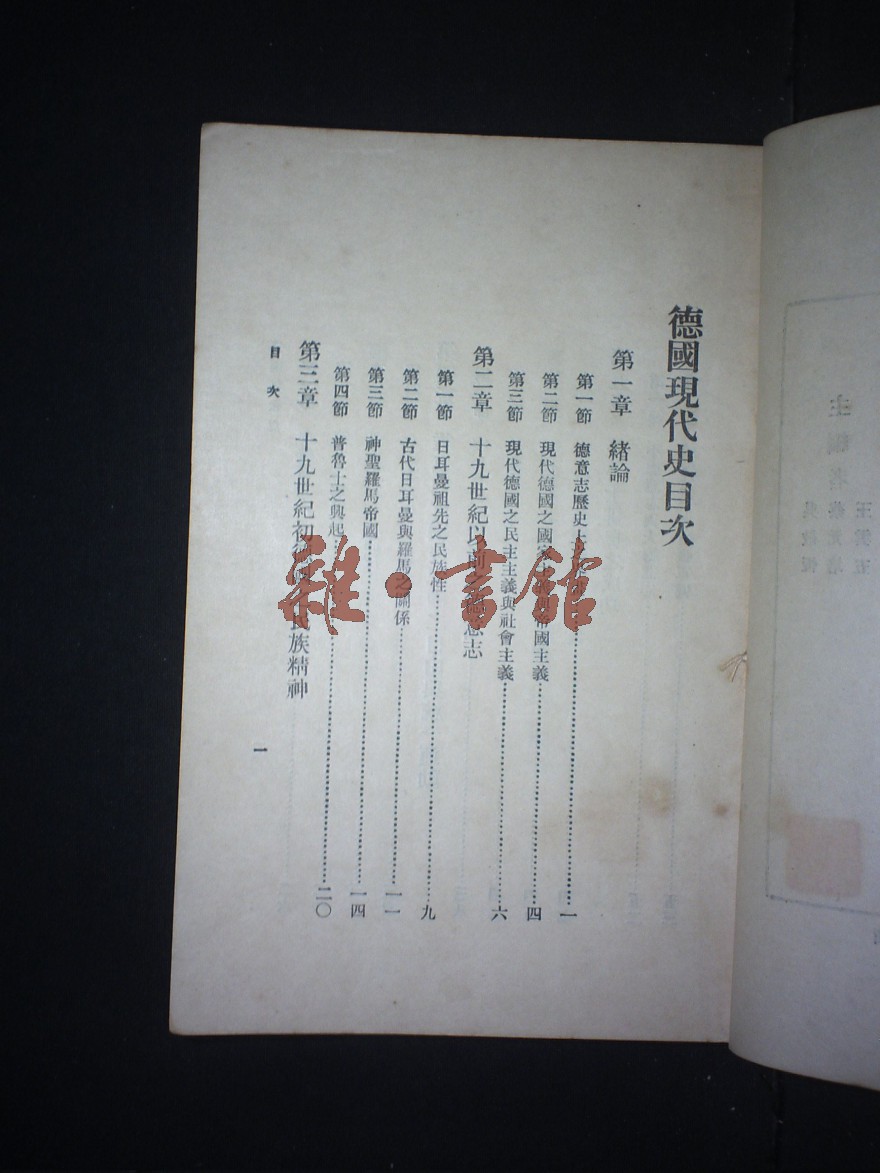 德國現代史目次
第一章 緒論
第一節 德意志歷史上 一
第二節 現代德國之國家主義與帝國主義 四
第三節 現代德國之民主主義與社會主義 六
第二章 十九世紀以前之德意志
第一節 日耳曼祖先之民族性 九
第二節 古代日耳曼與羅馬之關係 一一
第三節 神聖羅馬帝國 一四
第四節 普魯士之興起 二〇
第三章 十九世紀初德國之民族精神
目次
一
雜·書館